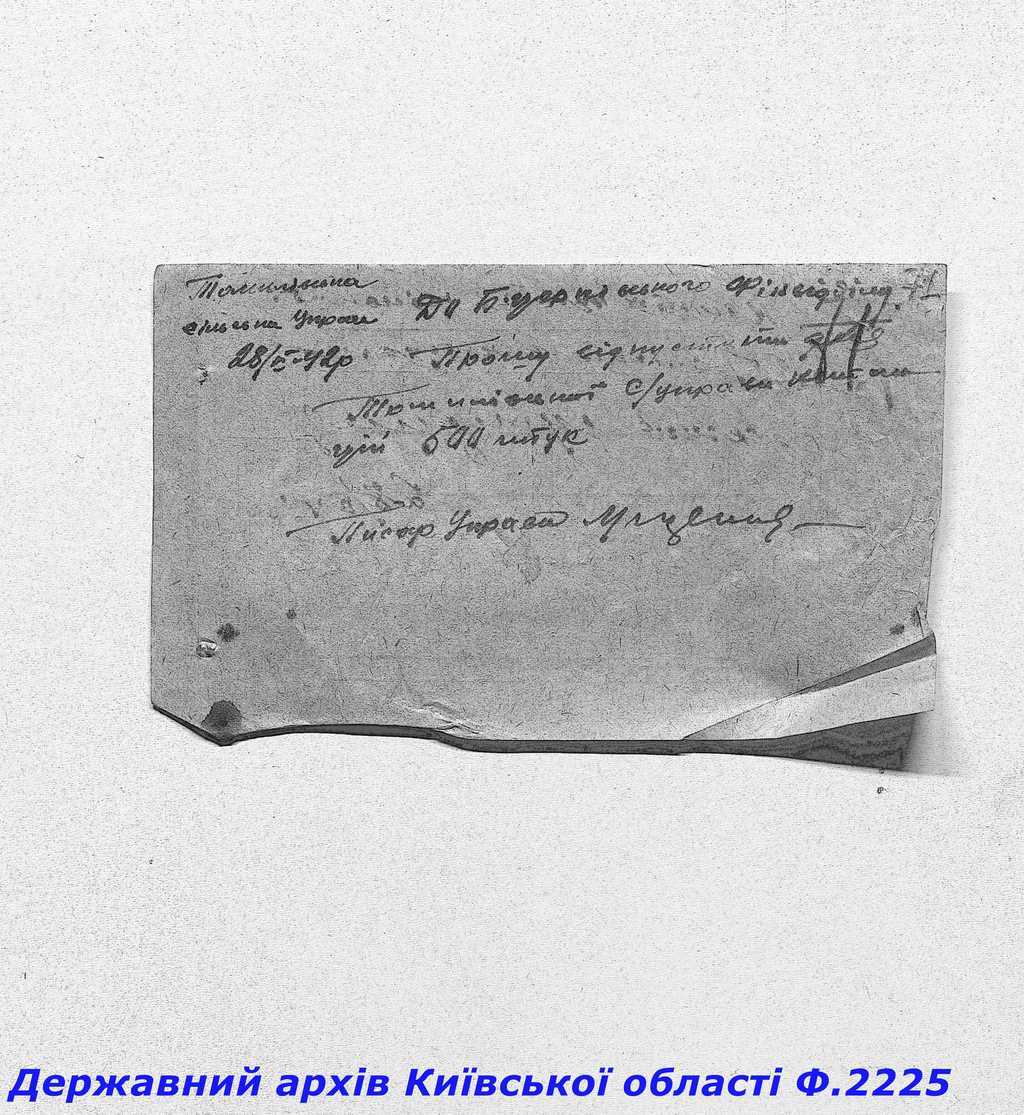 Томилівська
сільська Управа
28/ІХ-42р
До Б-церківського Фінвідділу 71
Прошу відпустити для
Томилівської С/управи квітан
цій 500 штук
Писар Управи
Державний архів Київської області Ф.2225